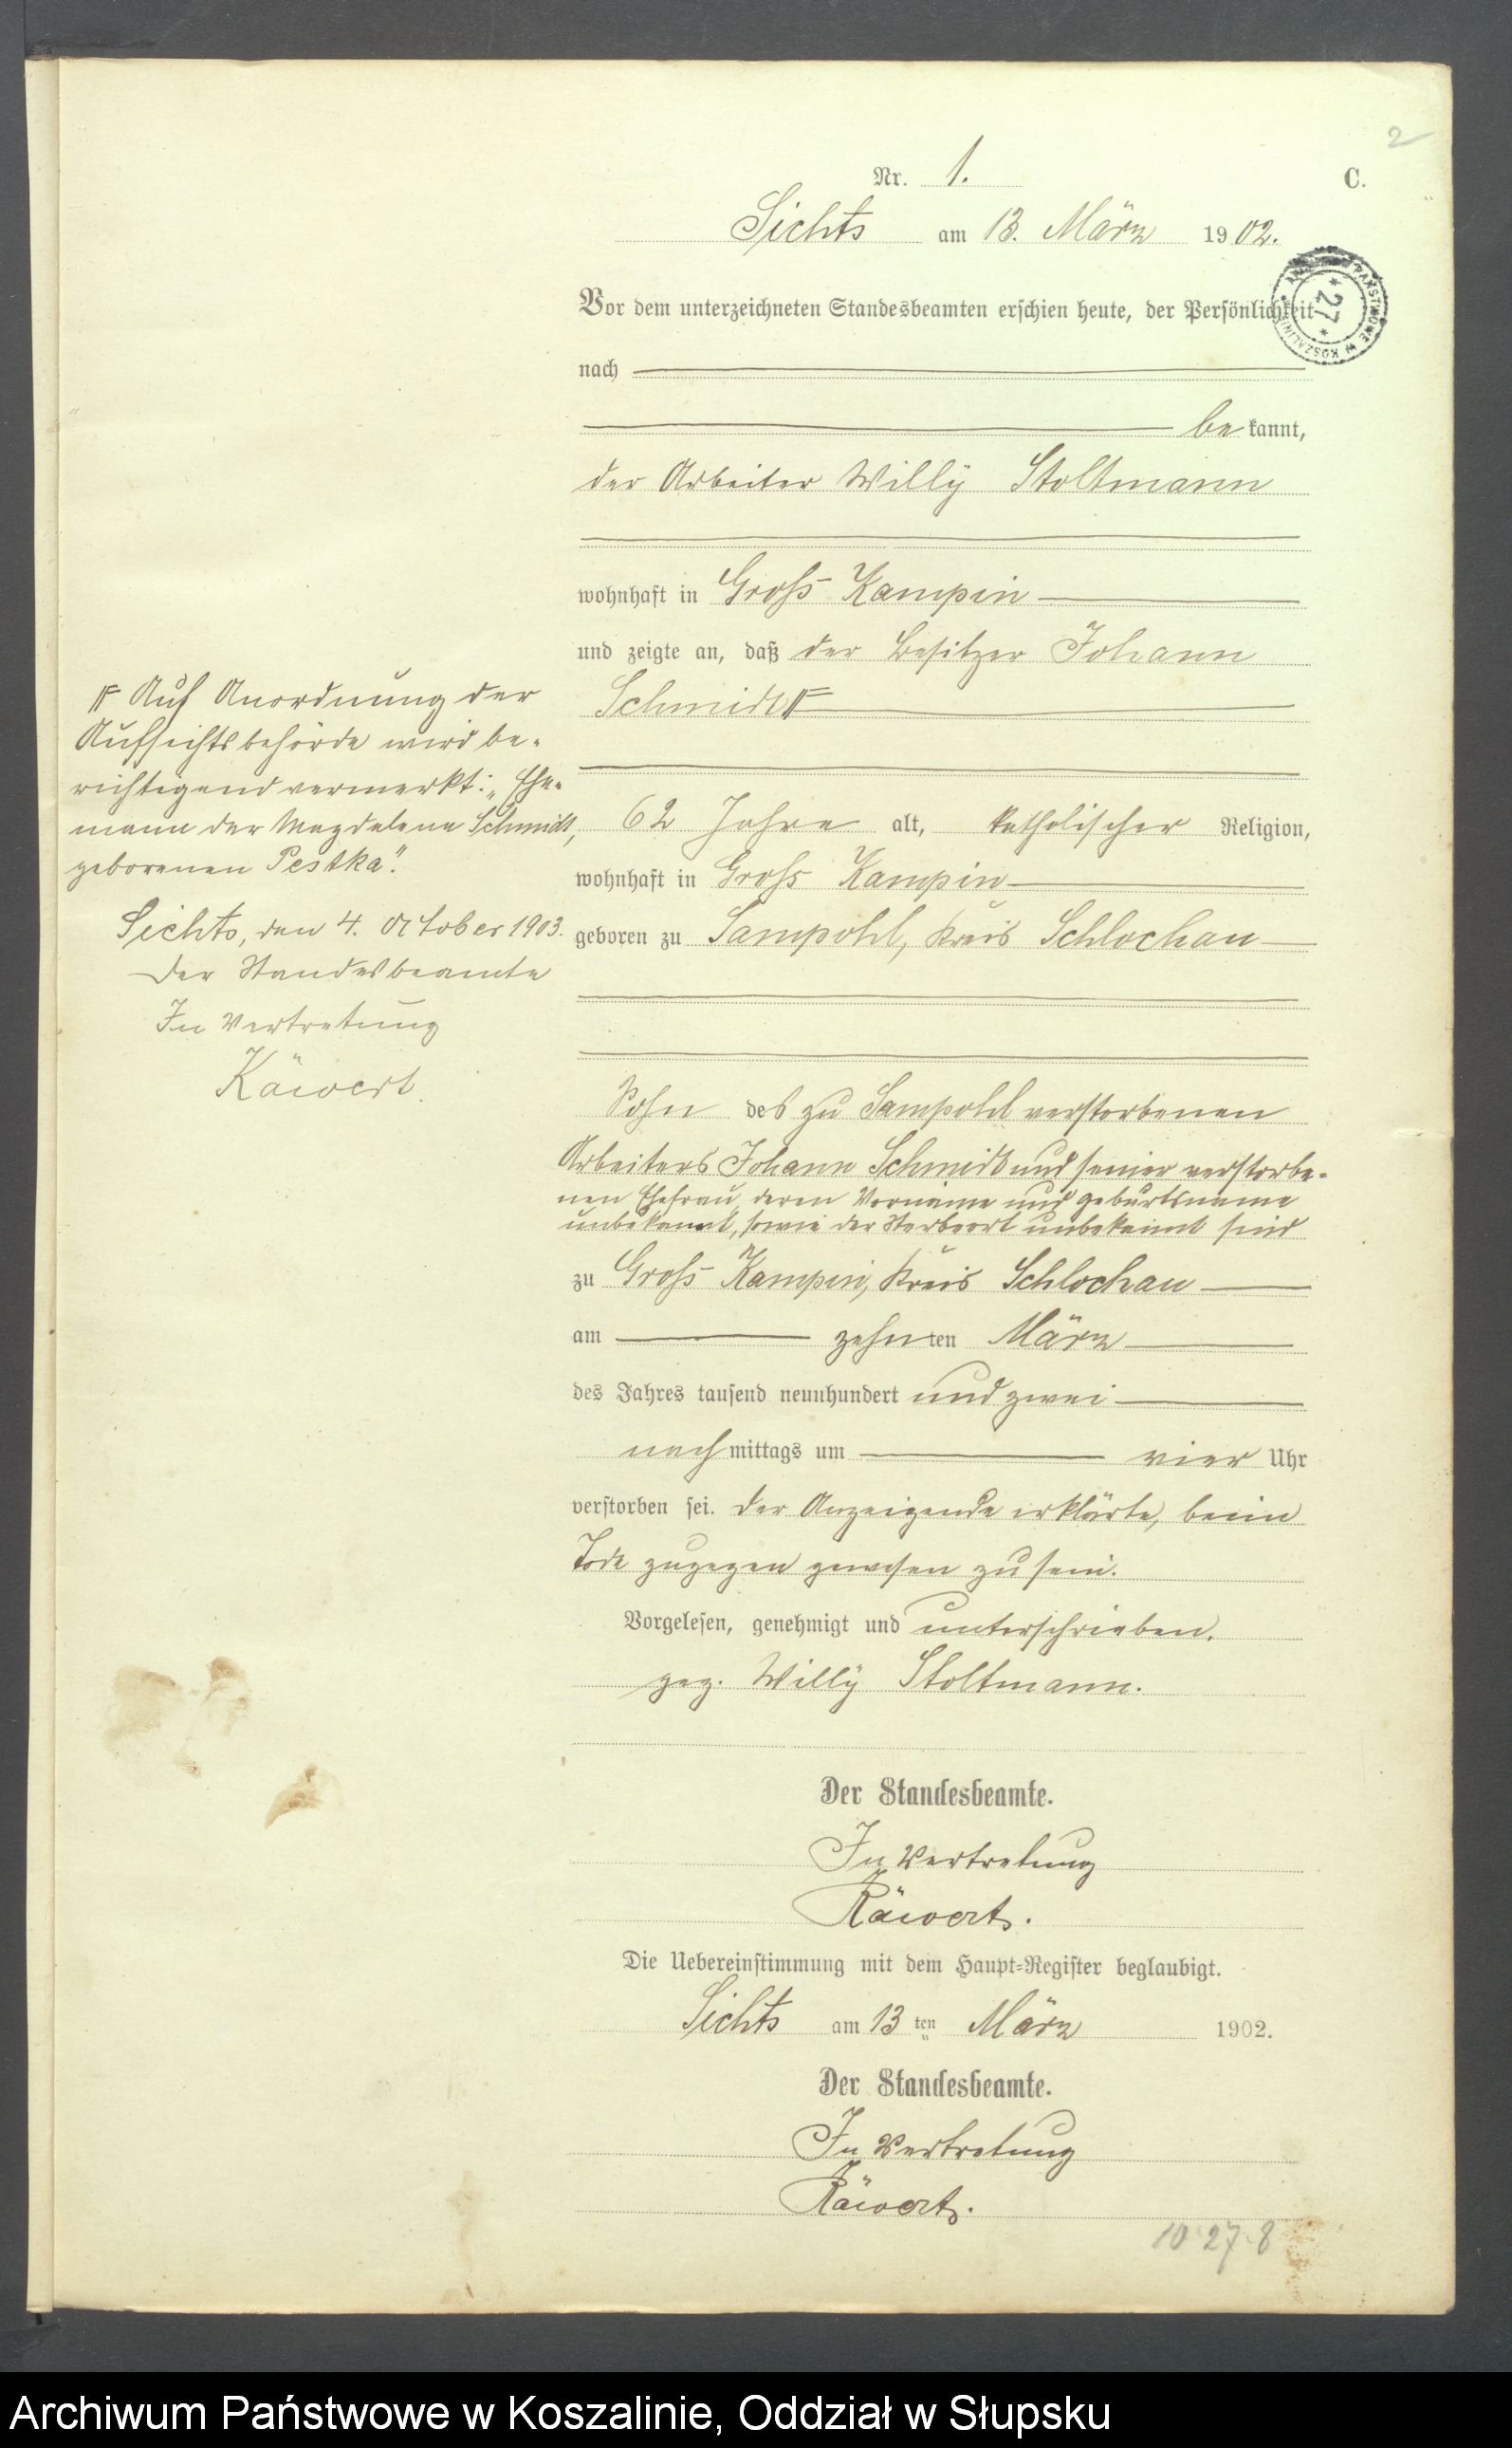 2
Nr. 1.
C.
Sichts am 13. März 1902.
Vor dem unterzeichneten Standesbeamten erschien heute, der Persönlichkeit
nach
bekannt,
der Arbeiter Willÿ Stoltmann
wohnhaft in Groß Kampin
und zeigte an, daß der Besitzer Johann
Schmidt F
62 Jahre alt, katholischer Religion,
wohnhaft in Groß Kampin
geboren zu Sampohl, Kreis Schlochau
Sohn des zu Sampohl verstorbenen
Arbeiters Johann Schmidt und seiner verstorbe-
nen Ehefrau, deren Vorname und Geburtsname
unbekannt, sowie der Sterbeort unbekannt sind
zu Groß Kampin, Kreis Schlochau
am zehnten März
des Jahres tausend neunhundert und zwei
nachmittags um vier Uhr
verstorben sei. Der Anzeigende erklärte, beim
Tode zugegen gewesen zu sein.
Vorgelesen, genehmigt und unterschrieben.
gez. Willÿ Stoltmann.
Der Standesbeamte.
In Vertretung
Käwert.
Die Uebereinstimmung mit dem Haupt-Register beglaubigt.
Sichts am 13 ten März 1902.
Der Standesbeamte.
In Vertretung
Käwert.
10 27 8
F Auf Anordnung der
Aufsichtsbehörde wird be-
richtigend vermerkt: „Ehe-
mann der Magdalena Schmidt,
geborenen Pestka“.
Sichts, den 4. October 1903.
Der Standesbeamte
In Vertretung
Käwert.
PAŃSTWOWE W KOSZALINIE
* 27 *
Archiwum Państwowe w Koszalinie, Oddział w Słupsku